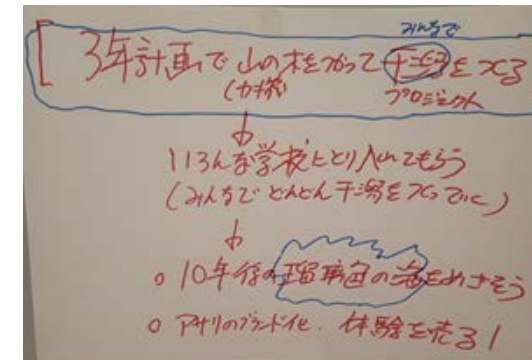 みんなで
[ 3年計画で山の木をつかって干潟をつくる
プロジェクト
いろんな学校にとり入れてもらう
(みんなでどんどん干潟をつくっていく)
○ 10年後の瑠璃色の海をめざそう
○ アサリのブランド化. 体験を売る!